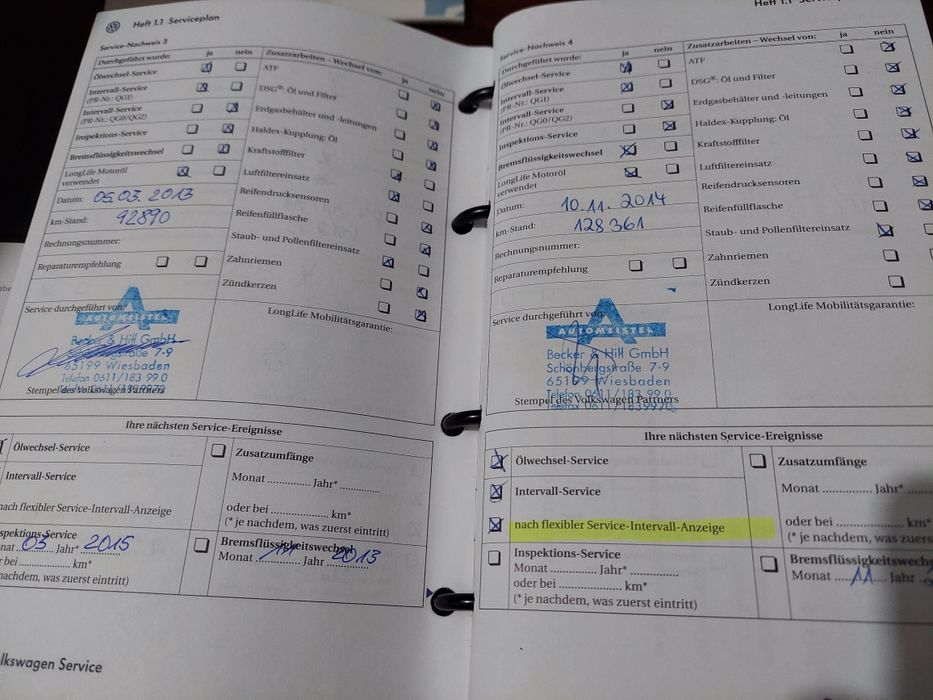 Heft 1.1 Serviceplan
Service-Nachweis 3
Durchgeführt wurde: ja nein
Ölwechsel-Service
Intervall-Service
(PR-Nr.: QG1)
Intervall-Service
(PR-Nr.: QG0/QG2)
Inspektions-Service
Bremsflüssigkeitswechsel
LongLife Motoröl
verwendet
Datum: 05.03.2013
km-Stand: 92890
Rechnungsnummer:
Reparaturempfehlung
Zusatzarbeiten – Wechsel von: ja nein
ATF
DSG®: Öl und Filter
Erdgasbehälter und -leitungen
Haldex-Kupplung: Öl
Kraftstofffilter
Luftfiltereinsatz
Reifendrucksensoren
Reifenfüllflasche
Staub- und Pollenfiltereinsatz
Zahnriemen
Zündkerzen
Service durchgeführt von:
AUTOMEISTER
Becker & Hill GmbH
Schönbergstraße 7-9
65199 Wiesbaden
Telefon 0611/183 99 0
Stempel des Volkswagen Partners
LongLife Mobilitätsgarantie:
Ihre nächsten Service-Ereignisse
Ölwechsel-Service
Intervall-Service
nach flexibler Service-Intervall-Anzeige
03 Jahr* 2015
km*
(* je nachdem, was zuerst eintritt)
Zusatzumfänge
Monat Jahr*
oder bei km*
(* je nachdem, was zuerst eintritt)
Bremsflüssigkeitswechsel
Monat Jahr 2013
Service
Service-Nachweis 4
Durchgeführt wurde: ja nein
Ölwechsel-Service
Intervall-Service
(PR-Nr.: QG1)
Intervall-Service
(PR-Nr.: QG0/QG2)
Inspektions-Service
Bremsflüssigkeitswechsel
LongLife Motoröl
verwendet
Datum: 10.11.2014
km-Stand: 128361
Rechnungsnummer:
Reparaturempfehlung
Zusatzarbeiten – Wechsel von: ja nein
ATF
DSG®: Öl und Filter
Erdgasbehälter und -leitungen
Haldex-Kupplung: Öl
Kraftstofffilter
Luftfiltereinsatz
Reifendrucksensoren
Reifenfüllflasche
Staub- und Pollenfiltereinsatz
Zahnriemen
Zündkerzen
Service durchgeführt von:
AUTOMEISTER
Becker & Hill GmbH
Schönbergstraße 7-9
65199 Wiesbaden
Telefon 0611/183 99 0
Telefax 0611/1839920
Stempel des Volkswagen Partners
LongLife Mobilitätsgarantie:
Ihre nächsten Service-Ereignisse
Ölwechsel-Service
Intervall-Service
nach flexibler Service-Intervall-Anzeige
Inspektions-Service
Monat Jahr*
oder bei km*
(* je nachdem, was zuerst eintritt)
Zusatzumfänge
Monat Jahr*
oder bei km*
(* je nachdem, was zuerst
Monat 11 Jahr